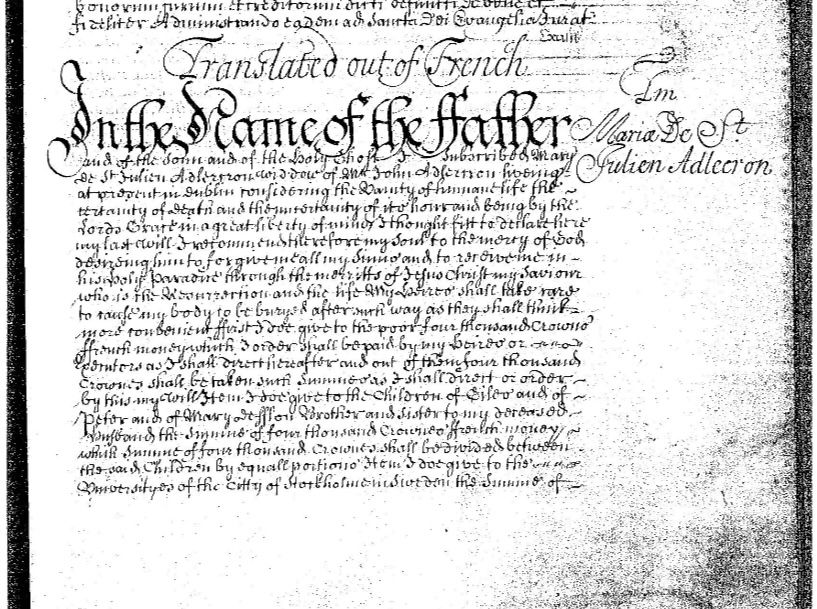 bonorum jurium et creditorum dicti defuncti de bene et
fideliter Administrando eadem ad Sancta Dei Evangelia Jurat
Exaiit
Translated out of French
Tm
Mariæ De St
Julien Adlecron
In the Name of the ffather
and of the Sonn and of the Holy Ghost I Subscribed Mary
de St Julien Adlercron widdow of Mr John Adlercron liveing
at present in Dublin considering the Vanity of humane life the
certainty of death and the uncertainty of its hour and being by the
Lords Grace in a great liberty of minde I thought fitt to declare here
my last Will I recommend therefore my Soul to the mercy of God
desireing him to forgive me all my Sinns and to receive me in
his Holy Paradise through the merritts of Jesus Christ my Saviour
who is the Resurrection and the life My Heires shall take care
to cause my body to be buryed after such way as they shall think
more convenient ffirst I doe give to the poor four thousand Crownes
ffrench money which I order shall be paid by my Heires or
Executors as I shall direct hereafter and out of them four thousand
Crownes shall be taken such Summes as I shall direct or order
by this my Will Item I doe give to the Children of Giles and of
Peter and of Mary Brother and Sister to my deceased
Husband the Summe of four thousand Crownes ffrench money
which Summe of four thousand Crownes shall be divided between
the said Children by equall portions Item I doe give to the
Universityes of the Citty of Stockholme in Sweden the Summe of